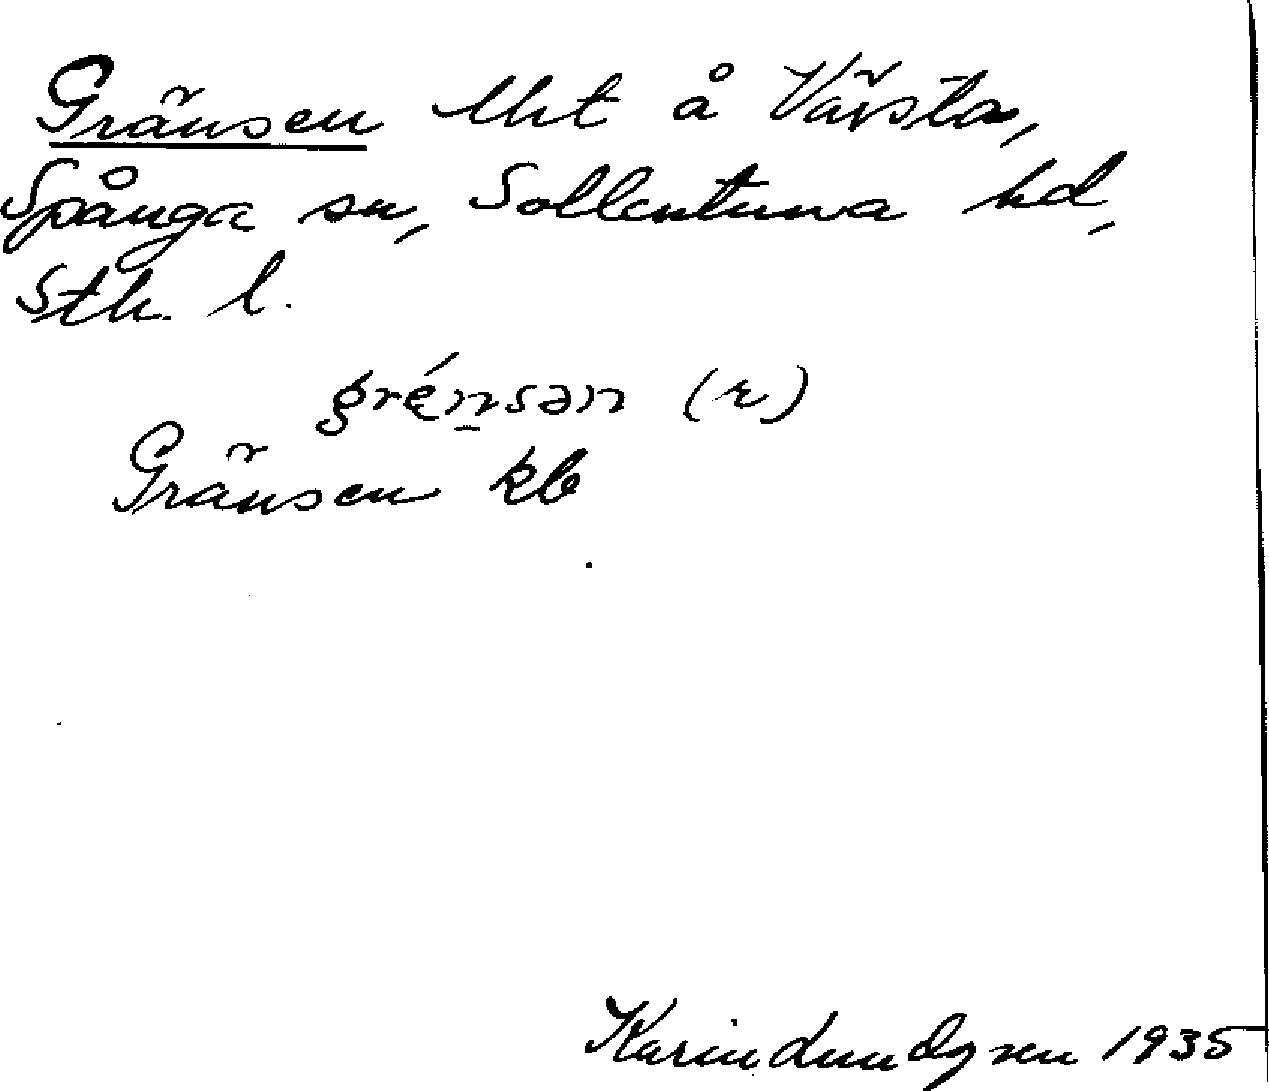 Gränsen lht å Vävsta,
Spånga sn, Sollentuna hd,
Sth. l.
grénsən (r)
Gränsen kb
Karin Lundgren 1935